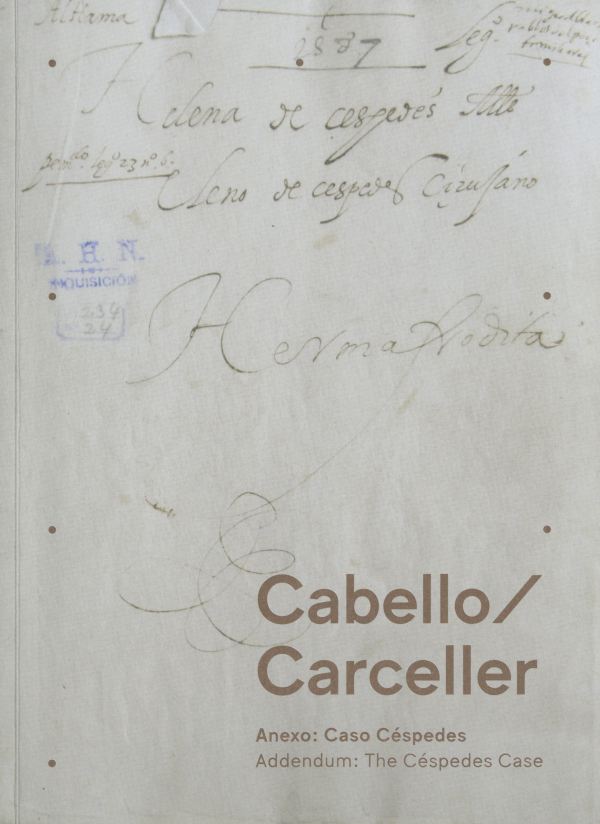 Altiama
1587
Leg.º
Helena de cespedes Alle
Eleno de cespedes Cirujano
A. H. N.
INQUISICIÓN
234
24
Hermafrodita
Cabello/
Carceller
Anexo: Caso Céspedes
Addendum: The Céspedes Case